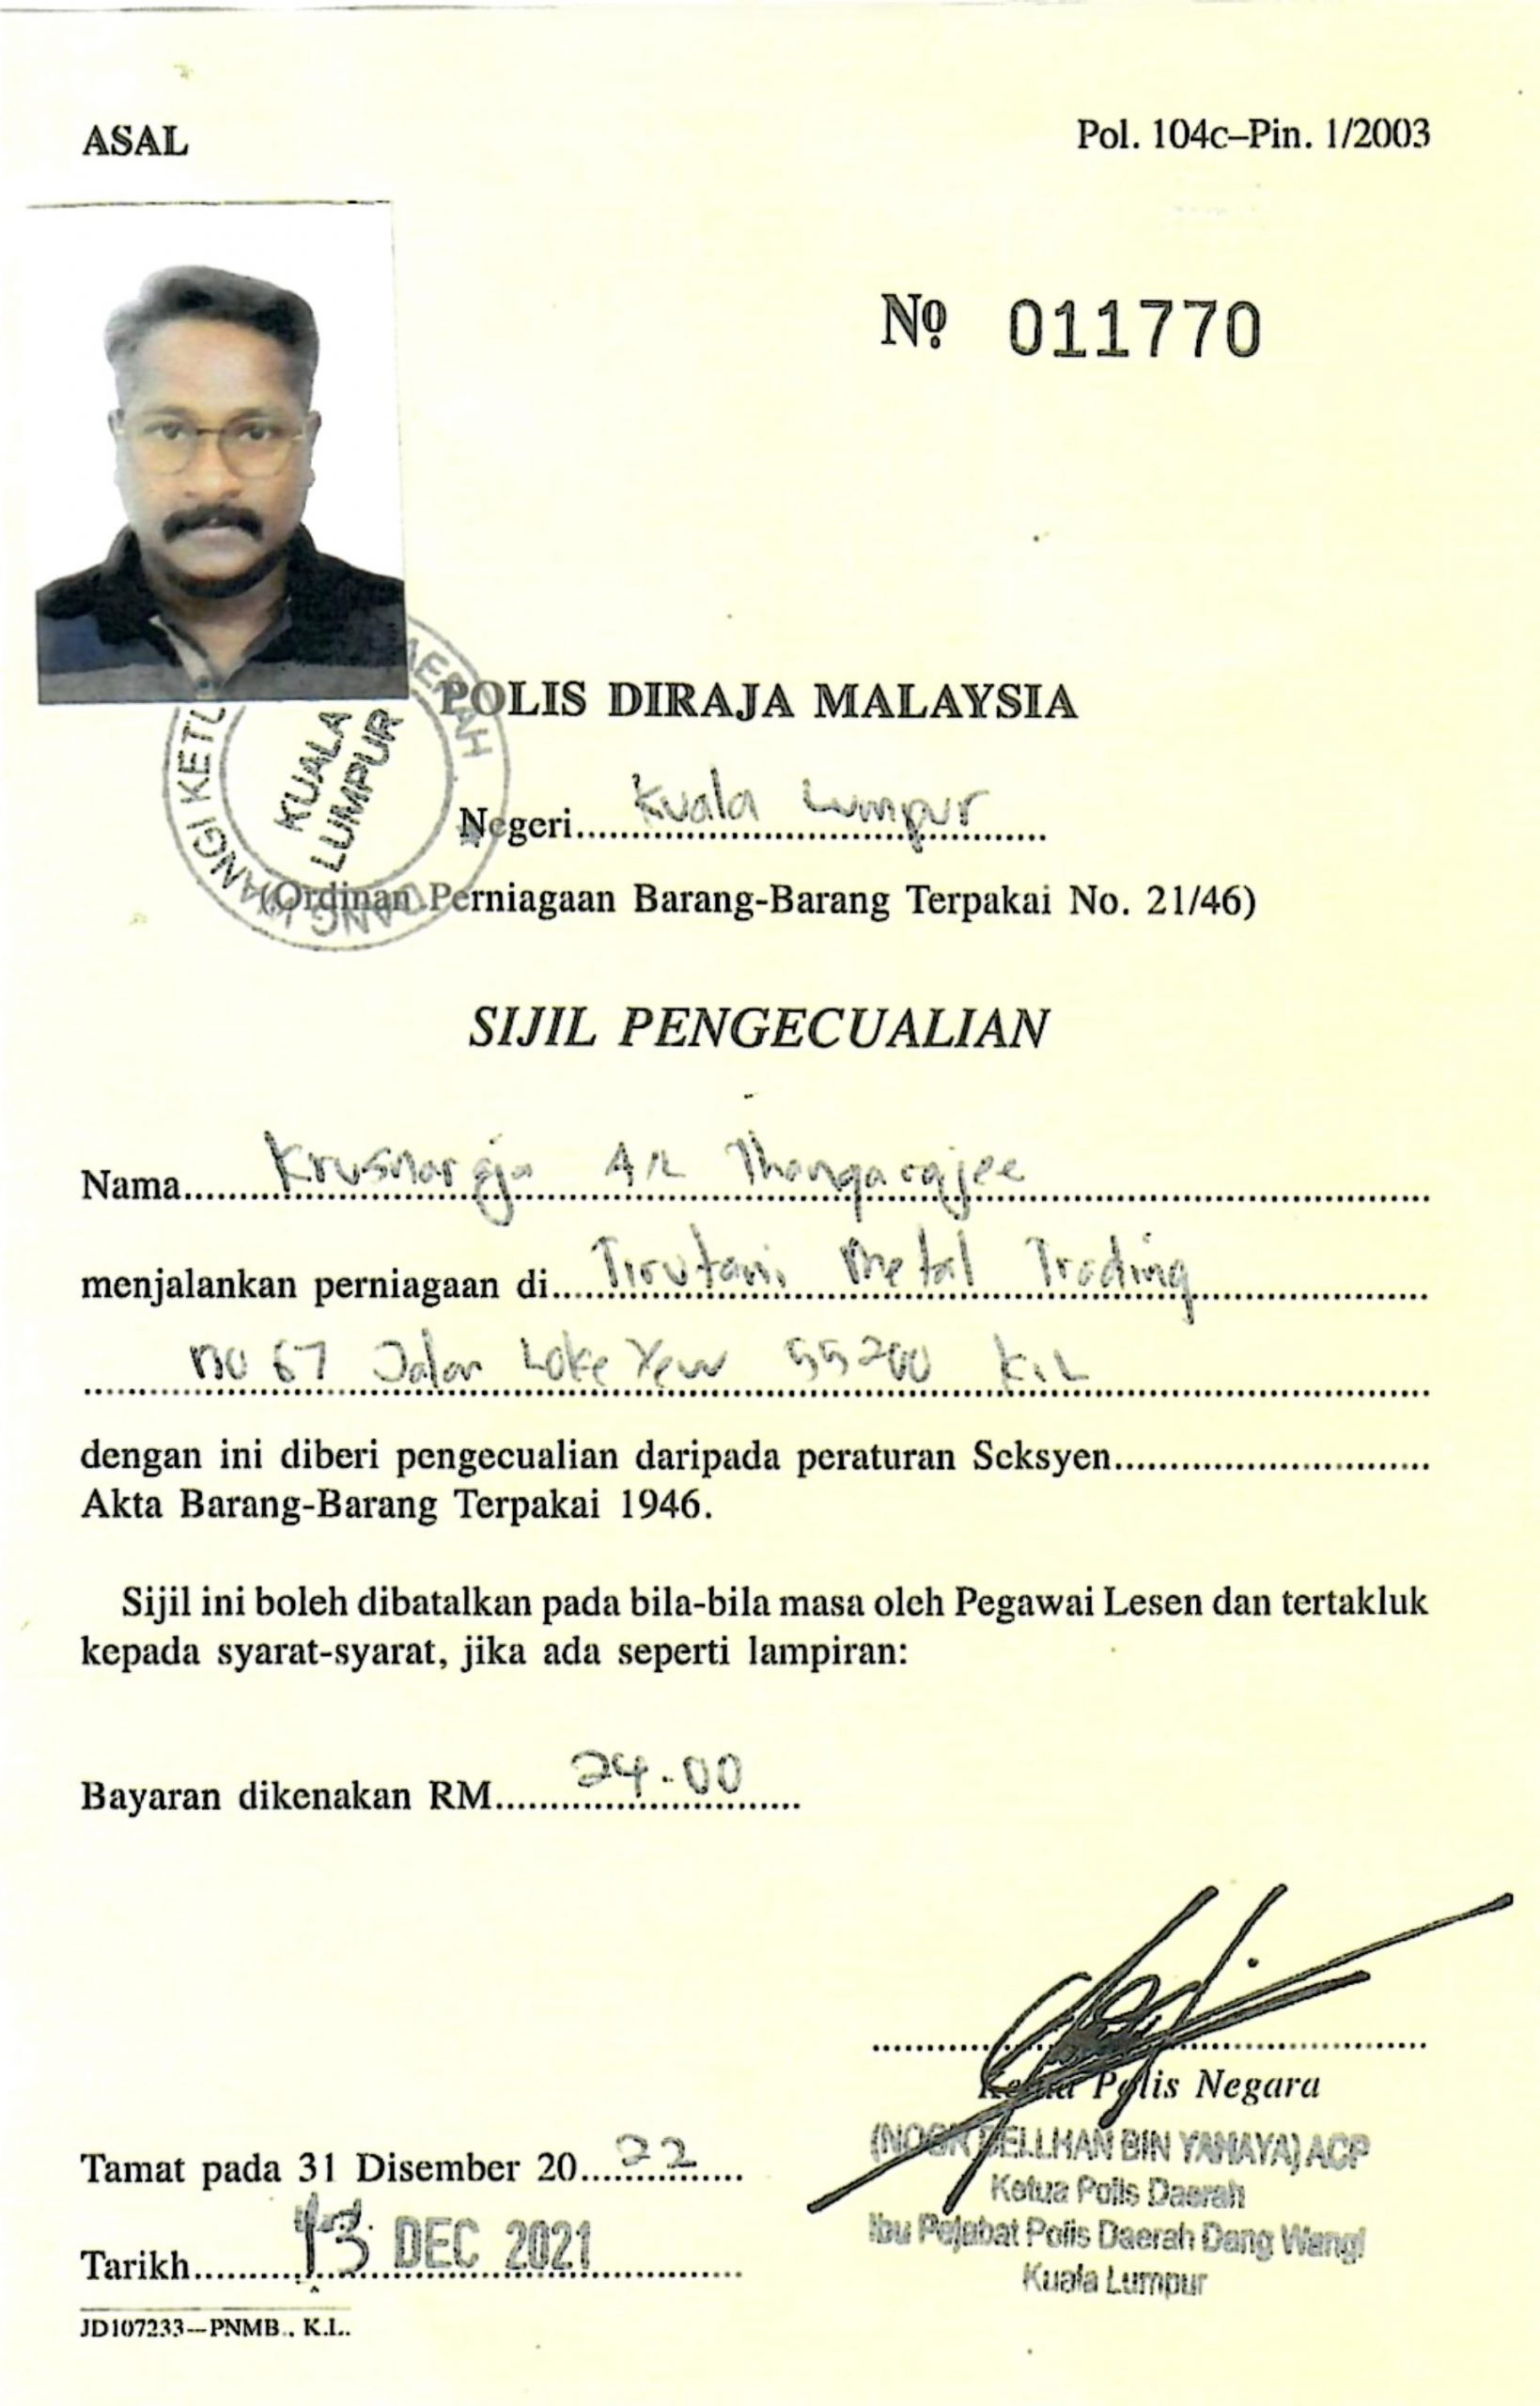 ASAL
Pol. 104c–Pin. 1/2003
Nº 011770
POLIS DIRAJA MALAYSIA
KUALA LUMPUR
Negeri Kuala Lumpur
(Ordinan Perniagaan Barang-Barang Terpakai No. 21/46)
SIJIL PENGECUALIAN
Nama Krusnaraja A/L Thangarajee
menjalankan perniagaan di Tirutani Metal Trading
no 67 Jalan Loke Yew 55200 K.L
dengan ini diberi pengecualian daripada peraturan Seksyen
Akta Barang-Barang Terpakai 1946.
Sijil ini boleh dibatalkan pada bila-bila masa oleh Pegawai Lesen dan tertakluk
kepada syarat-syarat, jika ada seperti lampiran:
Bayaran dikenakan RM 24.00
Ketua Polis Negara
BIN YAHAYA) ACP
Ketua Polis Daerah
Ibu Pejabat Polis Daerah Dang Wangi
Kuala Lumpur
Tamat pada 31 Disember 20 22
Tarikh 13 DEC 2021
JD107233—PNMB., K.L.